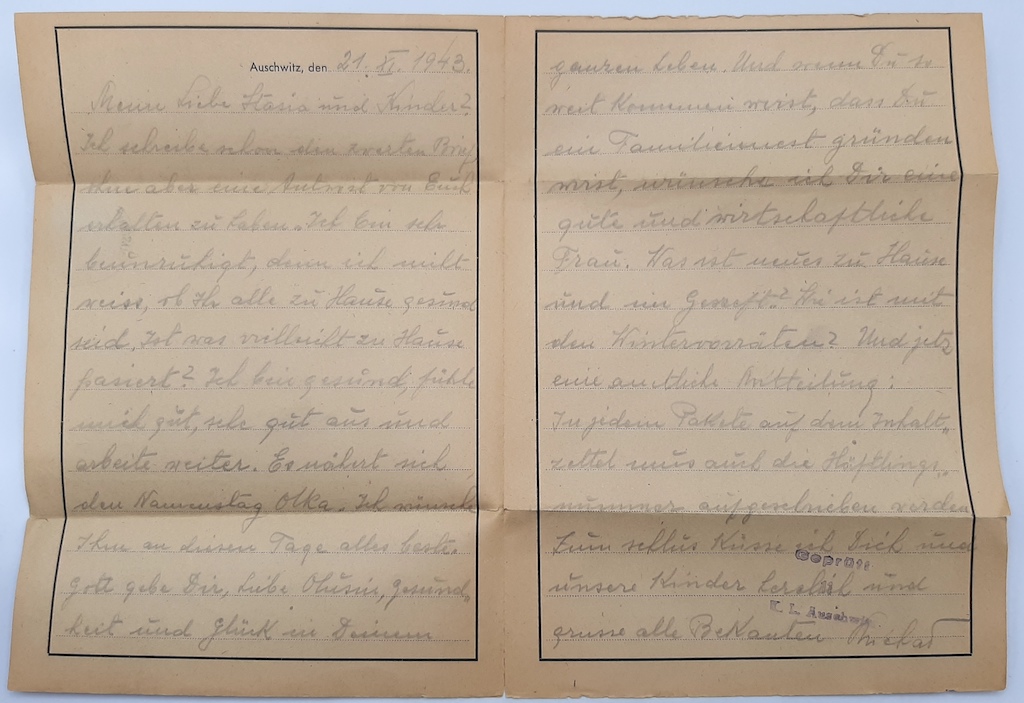 Auschwitz, den 21. XI. 1943.
Meine Liebe Stasia und Kinder!
Ich schreibe schon den zweiten Brief,
ohne aber eine Antwort von Euch
erhalten zu haben. Ich bin sehr
beunruhigt, denn ich nicht
weiss, ob Ihr alle zu Hause gesund
seid. Ist was vielleicht zu Hause
pasiert? Ich bin gesund, fühle
mich gut, sehe gut aus und
arbeite weiter. Es nähert sich
den Namnistag Olka. Ich wünsche
Ihm an diesen Tage alles beste.
Gott gebe Dir, Liebe Olusiu, gesund-
heit und Glück in Deinem
ganzen Leben. Und wenn Du so
weit kommen wirst, dass Du
ein Familiennest gründen
wirst, wünsche ich Dir eine
gute und wirtschaftliche
Frau. Was ist neues zu Hause
und im Geszeft? Wie ist mit
den Wintervorräten? Und jetz
eine amtliche Mitteilung:
In jedem Pakete auf dem Inhalt„
zettel mus auch die Häftlings„
nummer aufgeschrieben werden
Zum schlus Küsse ich Dich und
unsere Kinder herzlich und
grusse alle Bekanten
Geprüft
K. L. Auschwitz